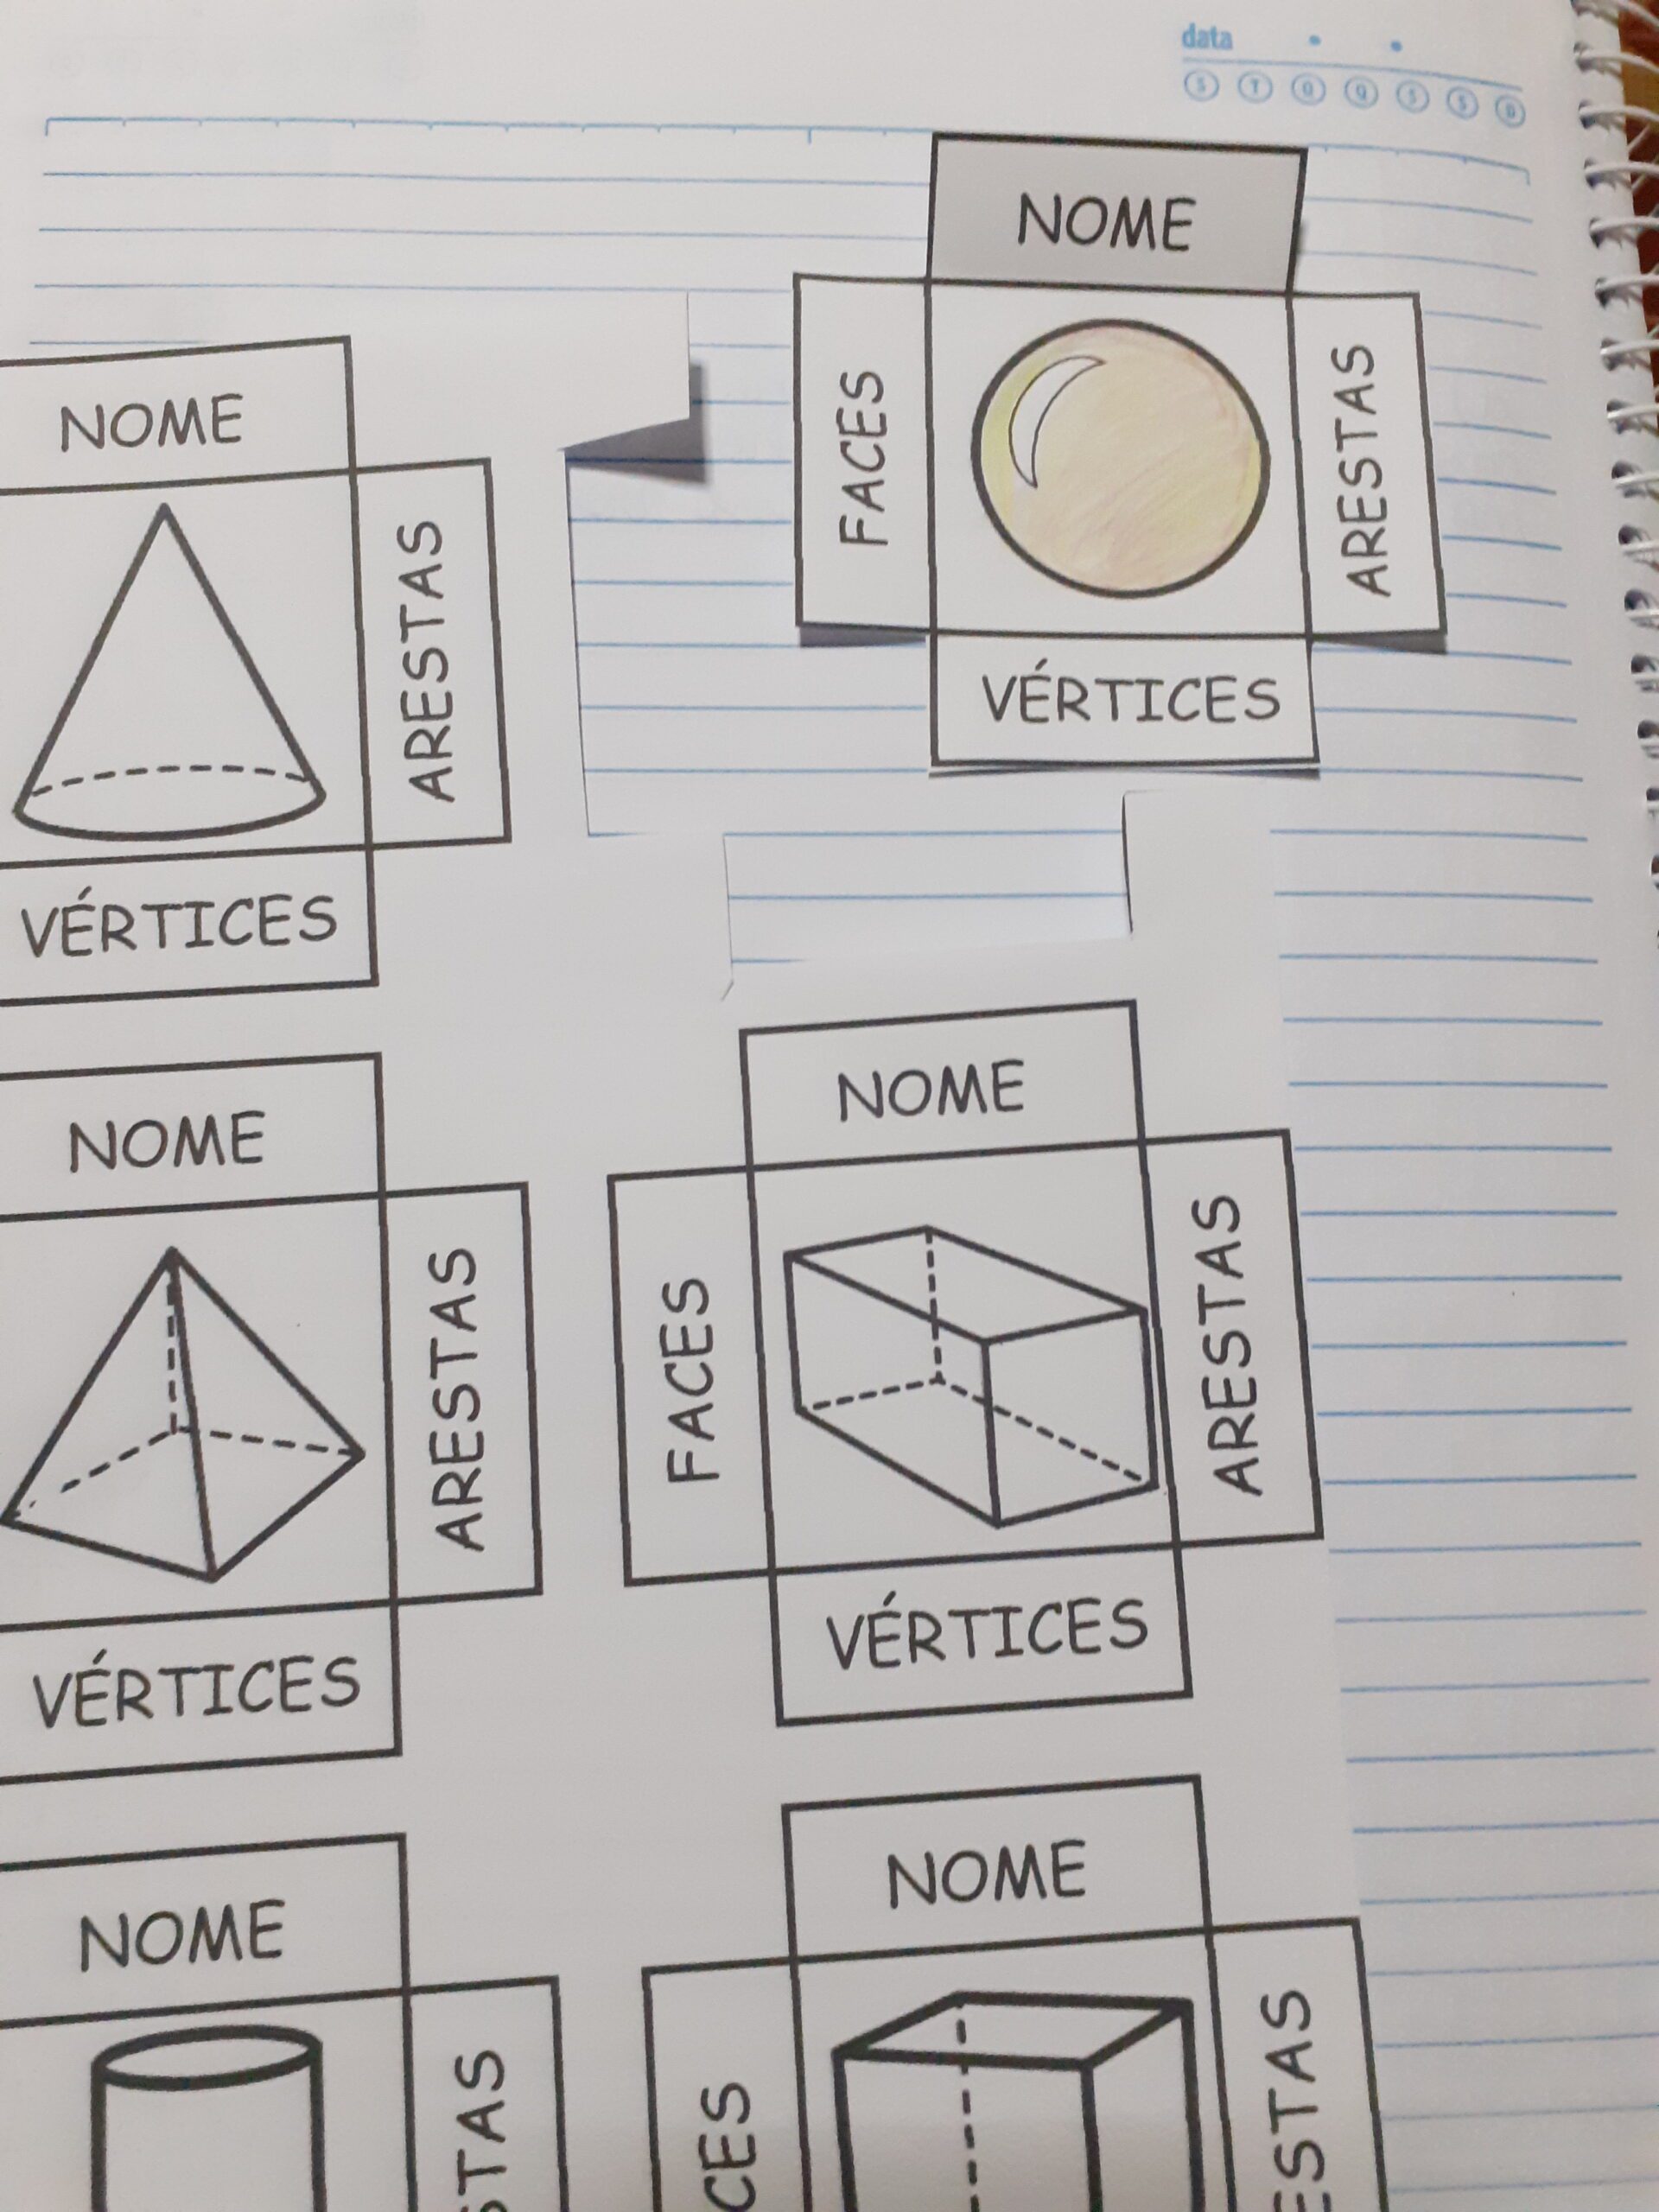 data
S T Q Q S S D
NOME
FACES
ARESTAS
VÉRTICES
NOME
ARESTAS
VÉRTICES
NOME
FACES
ARESTAS
VÉRTICES
NOME
ARESTAS
VÉRTICES
NOME
CES
ESTAS
NOME
STAS